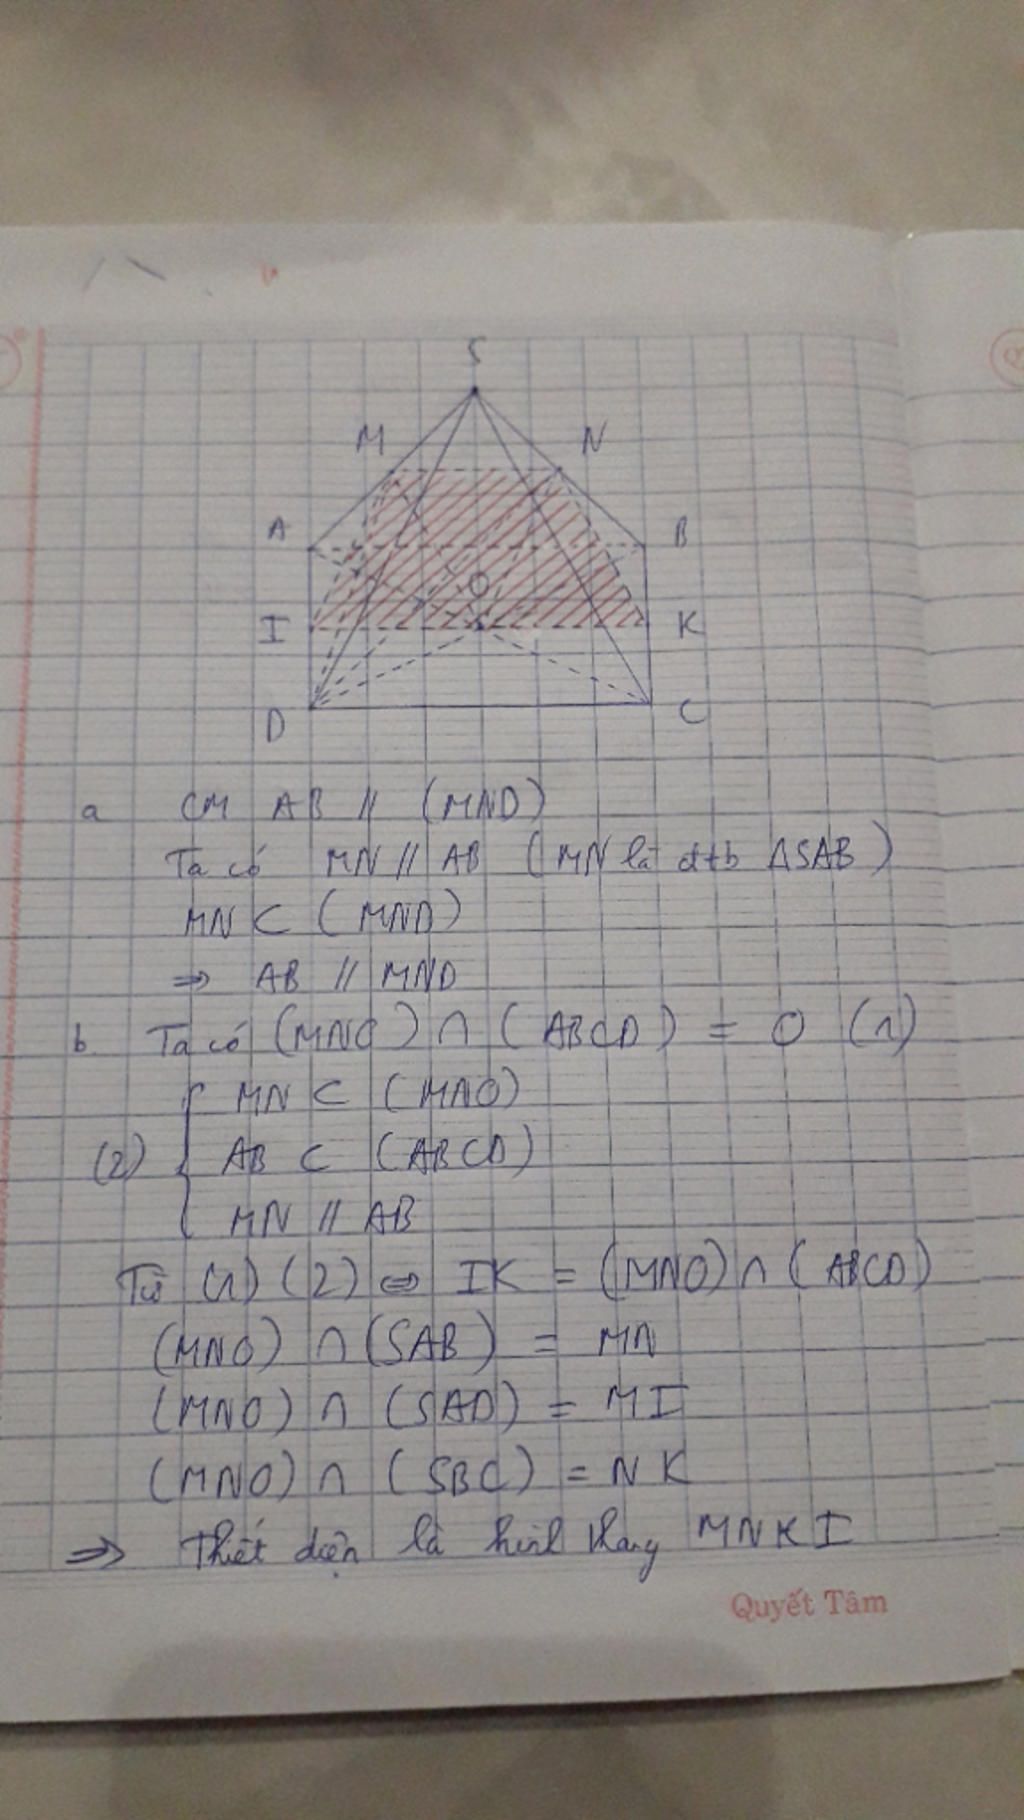 S
M N
A B
O
I K
D C
a CM AB // (MND)
Ta có MN // AB (MN là đtb ΔSAB)
MN ⊂ (MND)
⇒ AB // MND
b. Ta có (MNO) ∩ (ABCD) = O (1)
MN ⊂ (MNO)
(2) AB ⊂ (ABCD)
MN // AB
Từ (1) (2) ⇔ IK = (MNO) ∩ (ABCD)
(MNO) ∩ (SAB) = MN
(MNO) ∩ (SAD) = MI
(MNO) ∩ (SBC) = NK
⇒ Thiết diện là hình thang MNKI
Quyết Tâm